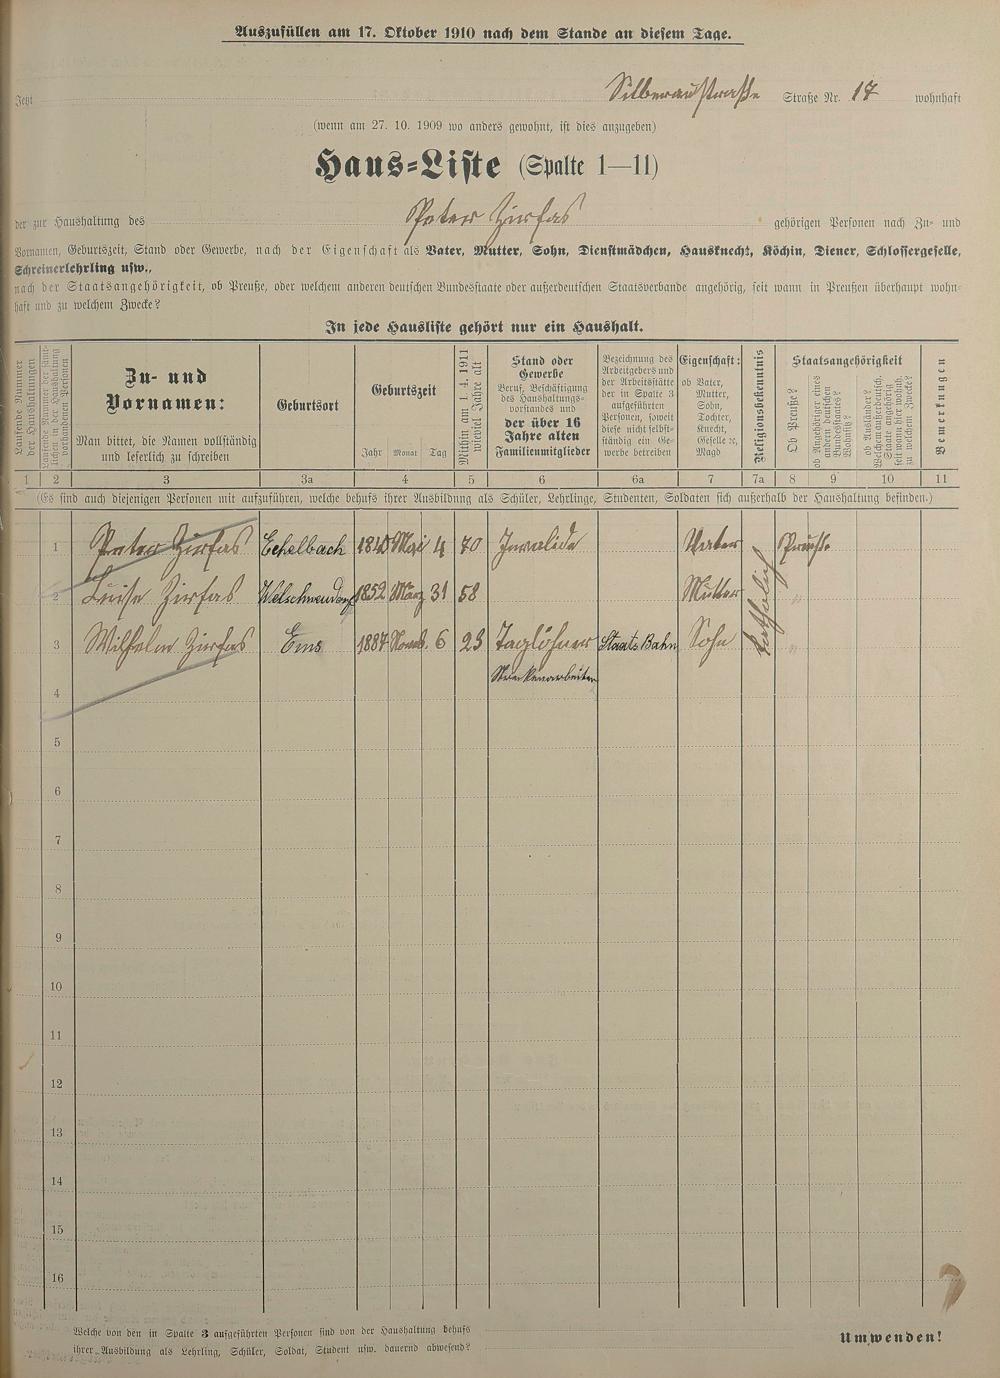 Auszufüllen am 17. Oktober 1910 nach dem Stande an diesem Tage.
Jetzt Silberaustraße Straße Nr. 17 wohnhaft
(wenn am 27. 10. 1909 wo anders gewohnt, ist dies anzugeben)
Haus-Liste (Spalte 1—11)
der zur Haushaltung des Peter Zirfas gehörigen Personen nach Zu- und
Vornamen, Geburtszeit, Stand oder Gewerbe, nach der Eigenschaft als Vater, Mutter, Sohn, Dienstmädchen, Hausknecht, Köchin, Diener, Schlossergeselle,
Schreinerlehrling usw.,
nach der Staatsangehörigkeit, ob Preuße, oder welchem anderen deutschen Bundesstaate oder außerdeutschen Staatsverbande angehörig, seit wann in Preußen überhaupt wohn-
haft und zu welchem Zwecke?
In jede Hausliste gehört nur ein Haushalt.
Laufende Nummer
der Haushaltungen
Laufende Nummer der sämt-
lichen in der Haushaltung
vorhandenen Personen
Zu- und
Vornamen:
Man bittet, die Namen vollständig
und leserlich zu schreiben
Geburtsort
Geburtszeit
Jahr Monat Tag
Mithin am 1. 4. 1911
wieviel Jahre alt
Stand oder
Gewerbe
Beruf, Beschäftigung
des Haushaltungs-
vorstandes und
der über 16
Jahre alten
Familienmitglieder
Bezeichnung des
Arbeitgebers und
der Arbeitsstätte
der in Spalte 3
aufgeführten
Personen, soweit
diese nicht selbst-
ständig ein Ge-
werbe betreiben
Eigenschaft:
ob Vater,
Mutter,
Sohn,
Tochter,
Knecht,
Geselle ec,
Magd
Religionsbekenntnis
Staatsangehörigkeit
Ob Preuße?
ob Angehöriger eines
andern deutschen
Bundesstaates?
Wohnsitz?
ob Ausländer?
Welchem außerdeutsch.
Staate angehörig
seit wann hier wohnh.
zu welchem Zwecke?
Bemerkungen
1 2 3 3a 4 5 6 6a 7 7a 8 9 10 11
(Es sind auch diejenigen Personen mit aufzuführen, welche behufs ihrer Ausbildung als Schüler, Lehrlinge, Studenten, Soldaten sich außerhalb der Haushaltung befinden.)
1 Peter Zirfas Echelbach Mai 4 70 Invalide Vater Preuße
2 Luise Zirfas 1852 März 31 58 Mutter katholisch "
3 Wilhelm Zirfas Ems 1887 Novb. 6 23 Taglöhner Staats Bahn Sohn "
Streckenarbeiter
4
5
6
7
8
9
10
11
12
13
14
15
16
Welche von den in Spalte 3 aufgeführten Personen sind von der Haushaltung behufs
ihrer Ausbildung als Lehrling, Schüler, Soldat, Student usw. dauernd abwesend?
Umwenden!